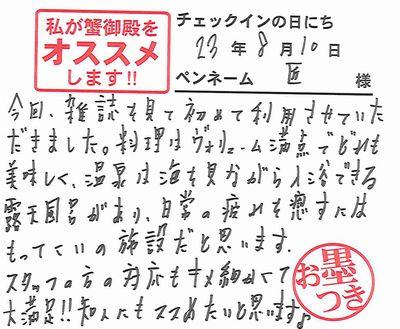 私が蟹御殿を
オススメ
します!!
チェックインの日にち
23年8月10日
ペンネーム 匠 様
今回、雑誌を見て初めて利用させていた
だきました。料理はヴォリューム満点でどれも
美味しく、温泉は海を見ながら入浴できる
露天風呂があり、日常の疲れを癒すには
もってこいの施設だと思います。
スタッフの方の対応もキメ細かくて
大満足!!知人にもススメたいと思います。
お墨
つき